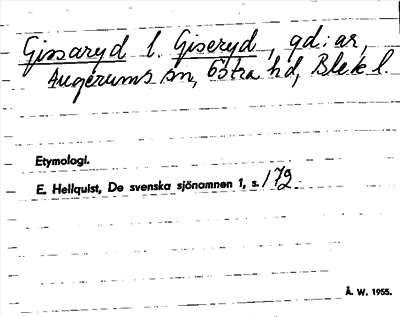 Gissaryd l. Giseryd, gd:ar,
Augerums sn, Östra hd, Blek l.
Etymologi.
E. Hellquist, De svenska sjönamnen 1, s. 172
Å. W. 1955.